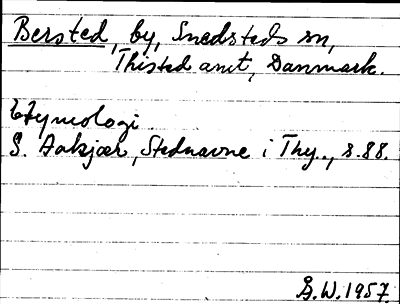 Bersted, by, Snedsteds sn,
Thisted amt, Danmark.
Etymologi
S. Aakjær, Stednavne i Thy.., s. 88.
G.W. 1957.